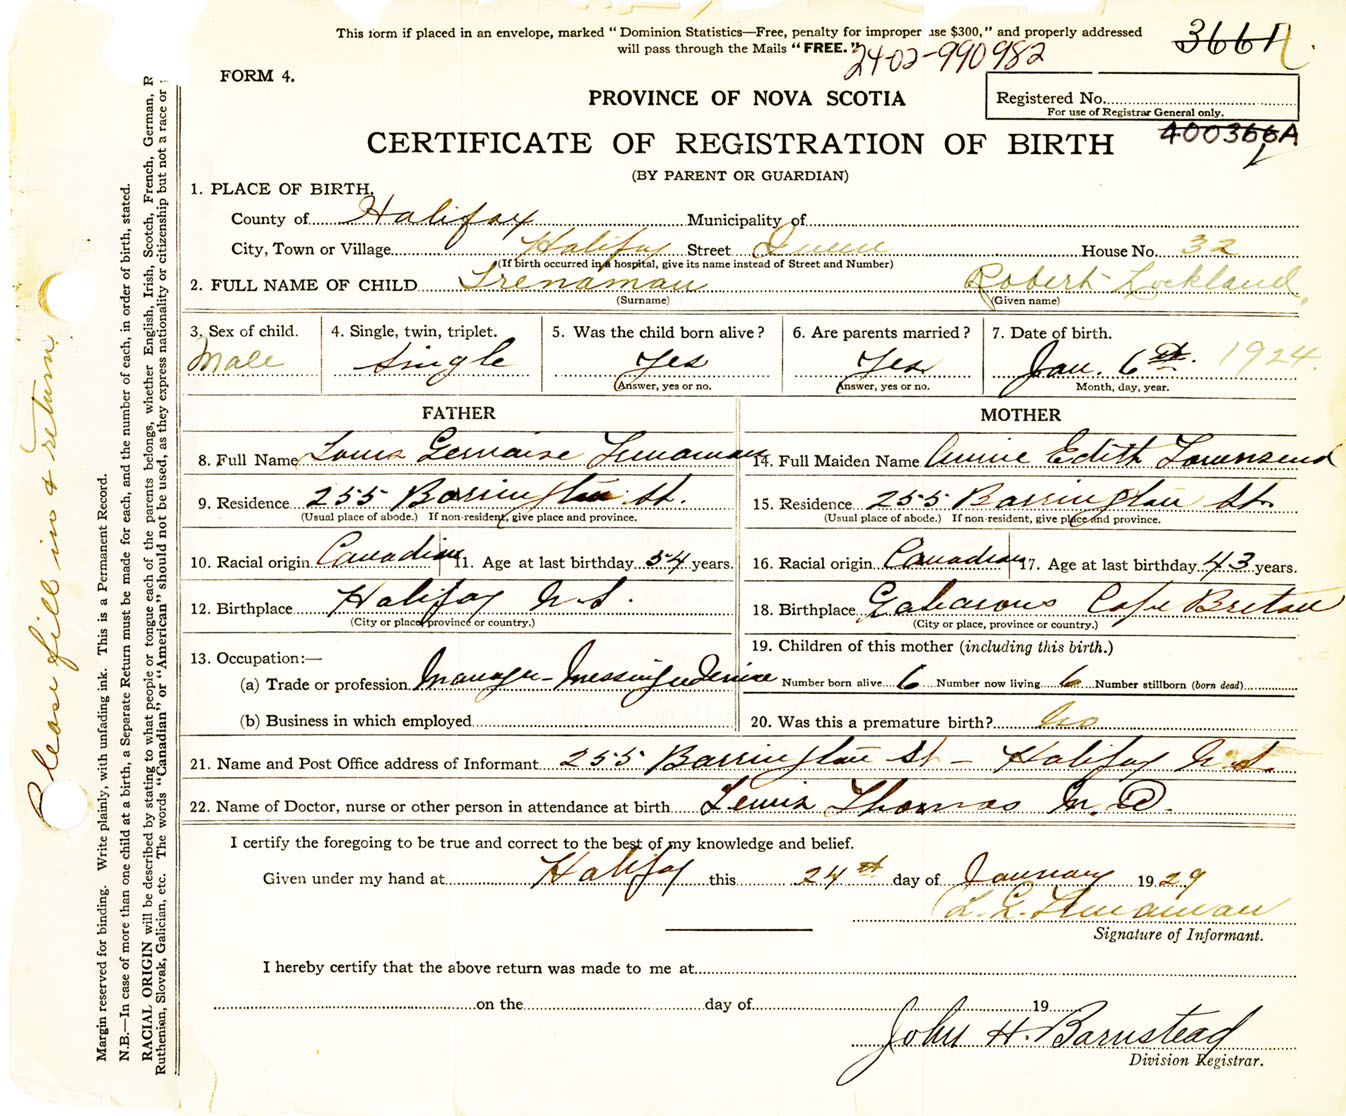 This form if placed in an envelope, marked "Dominion Statistics—Free, penalty for improper use $300," and properly addressed
will pass through the Mails "FREE."
3661
2402-990982
FORM 4.
PROVINCE OF NOVA SCOTIA
Registered No.
For use of Registrar General only.
400366A
CERTIFICATE OF REGISTRATION OF BIRTH
(BY PARENT OR GUARDIAN)
1. PLACE OF BIRTH,
County of Halifax Municipality of
City, Town or Village Halifax Street Queen House No. 32
(If birth occurred in a hospital, give its name instead of Street and Number)
2. FULL NAME OF CHILD Trenaman Robert Lockland
(Surname) (Given name)
3. Sex of child. 4. Single, twin, triplet. 5. Was the child born alive? 6. Are parents married? 7. Date of birth.
Male Single Yes Yes Jan. 6 1924.
(Answer, yes or no. (Answer, yes or no. Month, day, year.
FATHER MOTHER
8. Full Name Louis Gervaise Trenaman 14. Full Maiden Name Annie Edith Townsend
9. Residence 255 Barrington St. 15. Residence 255 Barrington St.
(Usual place of abode.) If non-resident, give place and province. (Usual place of abode.) If non-resident, give place and province.
10. Racial origin Canadian 11. Age at last birthday 54 years. 16. Racial origin Canadian 17. Age at last birthday 43 years.
12. Birthplace Halifax N.S. 18. Birthplace Gabarous Cape Breton
(City or place, province or country.) (City or place, province or country.)
13. Occupation:— 19. Children of this mother (including this birth.)
(a) Trade or profession Manager - Messenger Service Number born alive 6 Number now living 6 Number stillborn (born dead)
(b) Business in which employed 20. Was this a premature birth? No
21. Name and Post Office address of Informant 255 Barrington St - Halifax N.S.
22. Name of Doctor, nurse or other person in attendance at birth Lewis Thomas M.D.
I certify the foregoing to be true and correct to the best of my knowledge and belief.
Given under my hand at Halifax this 24 day of January 1929
L. G. Trenaman
Signature of Informant.
I hereby certify that the above return was made to me at
on the day of 19
John H. Barnstead
Division Registrar.
Please fill in & return
Margin reserved for binding. Write plainly, with unfading ink. This is a Permanent Record.
N.B.—In case of more than one child at a birth, a Separate Return must be made for each, and the number of each, in order of birth, stated.
RACIAL ORIGIN will be described by stating to what people or tongue each of the parents belongs, whether English, Irish, Scotch, French, German, R
Ruthenian, Slovak, Galician, etc. The words "Canadian" or "American" should not be used, as they express nationality or citizenship but not a race or